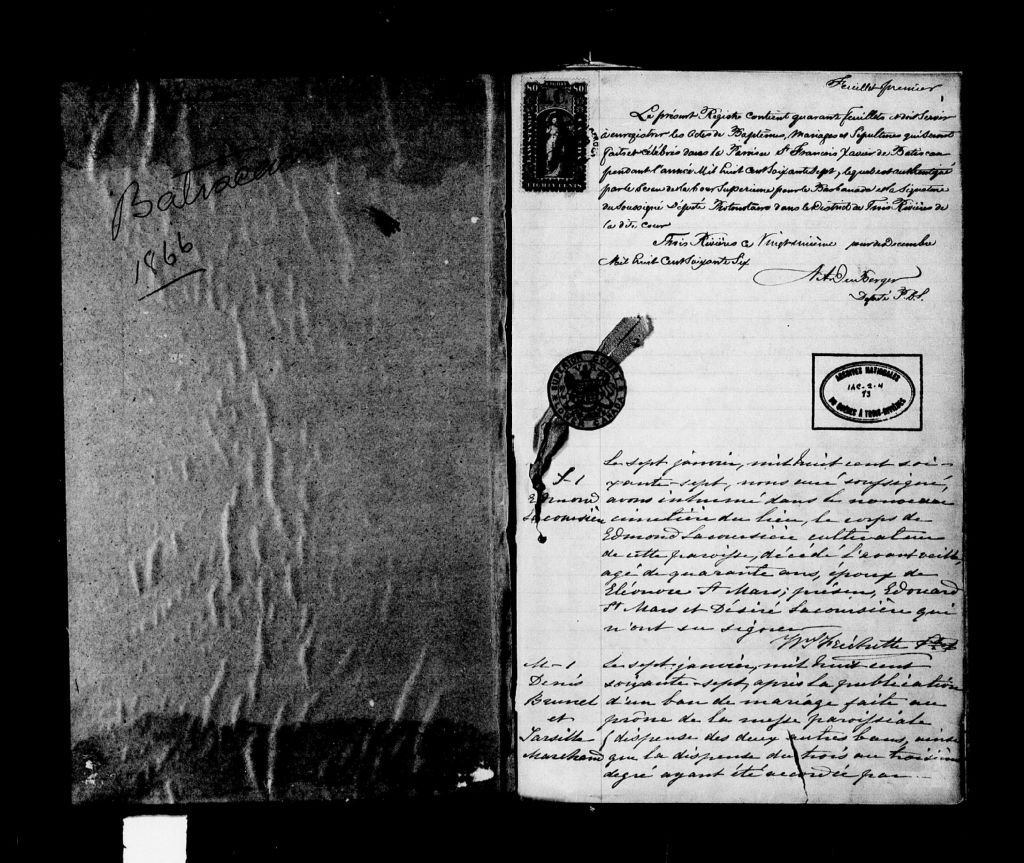 Batiscan
1866
Feuillet premier
Le présent Registre contient quarante feuillets et doit servir
à enregistrer les actes de Baptêmes, Mariages et Sépultures qui seront
faits et célébrés dans la Paroisse St François Xavier de Batiscan
pendant l'année Mil huit Cent Soixante Sept, lequel est authentiqué
par le Sceau de la Cour Supérieure pour le Bas Canada et la Signature
du Soussigné Député Protonotaire dans le District de Trois Rivières de
la dite cour
Trois Rivières ce Vingt jour de Décembre
Mil huit Cent Soixante Six
Député P.C.S.
SUPERIOR COURT
LOWER CANADA
ARCHIVES NATIONALES
IAC-2-4
T3
DU QUÉBEC À TROIS-RIVIÈRES
S-1
Edmond
Lacoursière
Le sept janvier, mil huit cent soi-
xante-sept, nous curé soussigné,
avons inhumé dans le nouveau
cimetière du lieu, le corps de
Edmond Lacoursière cultivateur
de cette paroisse, décédé l'avant veille,
agé de quarante ans, époux de
Eléonore St Mars; présens, Edouard
St Mars et Désiré Lacoursière qui
n'ont su signer
Wm Fréchette Ptre
M-1
Denis
Brunel
et
Tarsille
Marchand
Le sept janvier, mil huit cent
soixante-sept, après la publication
d'un ban de mariage faite au
prône de la messe paroissiale
(dispense des deux autres bans, ainsi
que la dispense du trois au troisième
degré ayant été accordée par